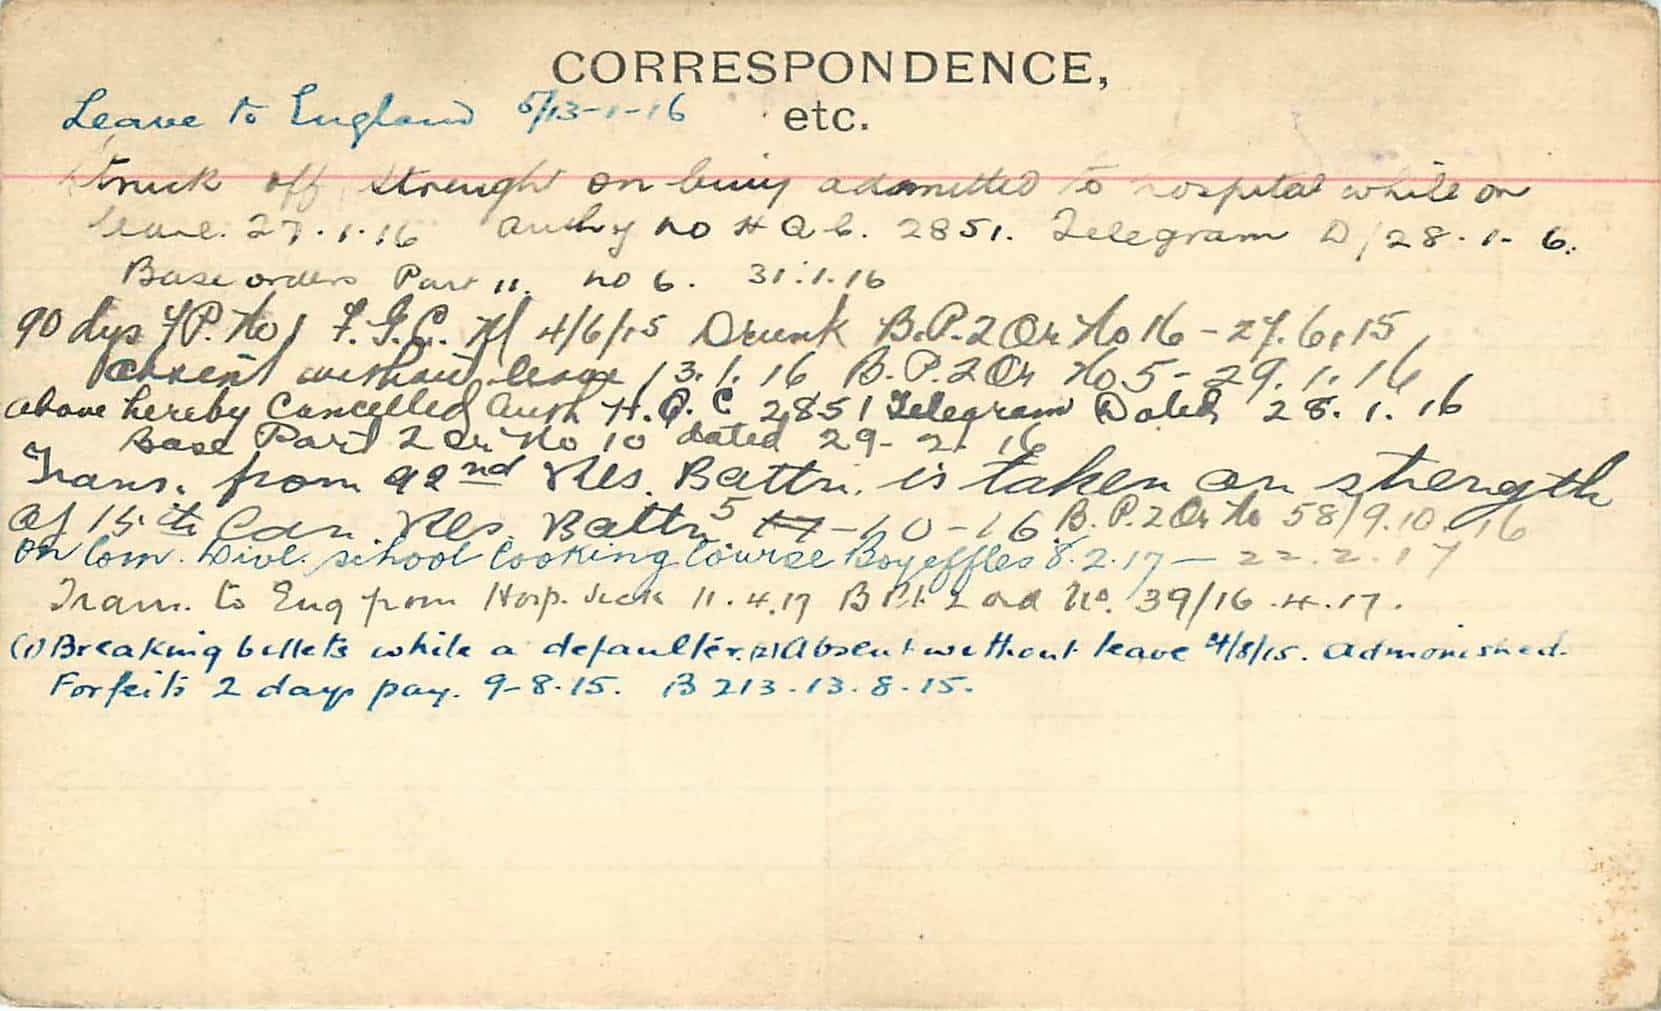 CORRESPONDENCE,
etc.
Leave to England 5/13-1-16
Struck off strenght on being admitted to hospital while on
leave. 27.1.16 Authy no H Q C. 2851. Telegram D/28.1-6.
Base orders Part 11. no 6. 31.1.16
90 dys F.P. No 1 F.G.C.M 4/6/15 Drunk B.P.2 Or No 16 - 27.6.15
Absent without leave 13.1.16 B.P.2 Or No 5 - 29.1.16
above hereby Cancelled Auth H.Q.C 2851 Telegram Dated 28.1.16
Base Part 2 Or No 10 dated 29-2-16
Trans. from 92nd Res. Battn. is taken on strength
of 15th Can. Res. Battn 5-10-16 B.P.2 Or No 58/9.10.16
On Com. Divl. school Cooking Course 8.2.17 - 22.2.17
Trans. to Eng from Hosp. sick 11.4.17 B Pt 2 ord No. 39/16.4.17.
(1) Breaking billets while a defaulter. (2) Absent without leave 4/8/15. Admonished.
Forfeits 2 days pay. 9-8-15. B 213-13.8.15.